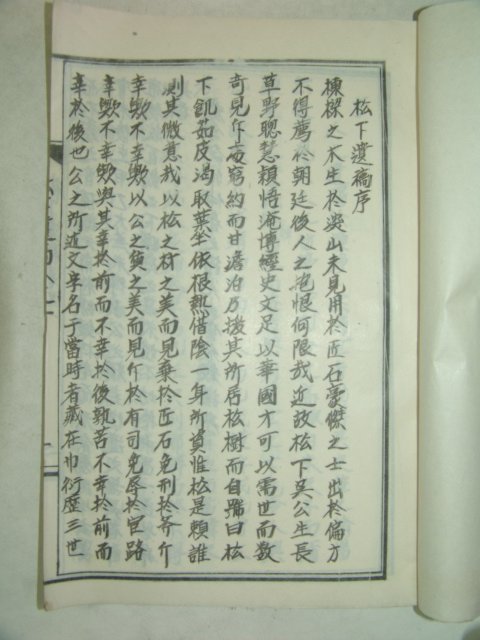 松下遺稿序
棟樑之木生於深山未見用於匠石豪傑之士出於偏方
不得薦於朝廷後人之抱恨何限哉近故松下吳公生長
草野聰慧穎悟淹博經史文足以華國才可以需世而数
奇見斥安窮約而甘澹泊乃援其所居松樹而自號曰松
下飢茹皮渴取葉坐依根熱借陰一年所資惟松是賴誰
測其微意哉以松之材之美而見棄於匠石免刑於斧斤
幸歟不幸歟以公之質之美而見斥於有司免辱於宦路
幸歟不幸歟與其幸於前而不幸於後孰若不幸於前而
幸於後也公之所述文早名于當時者藏在巾衍歷三世